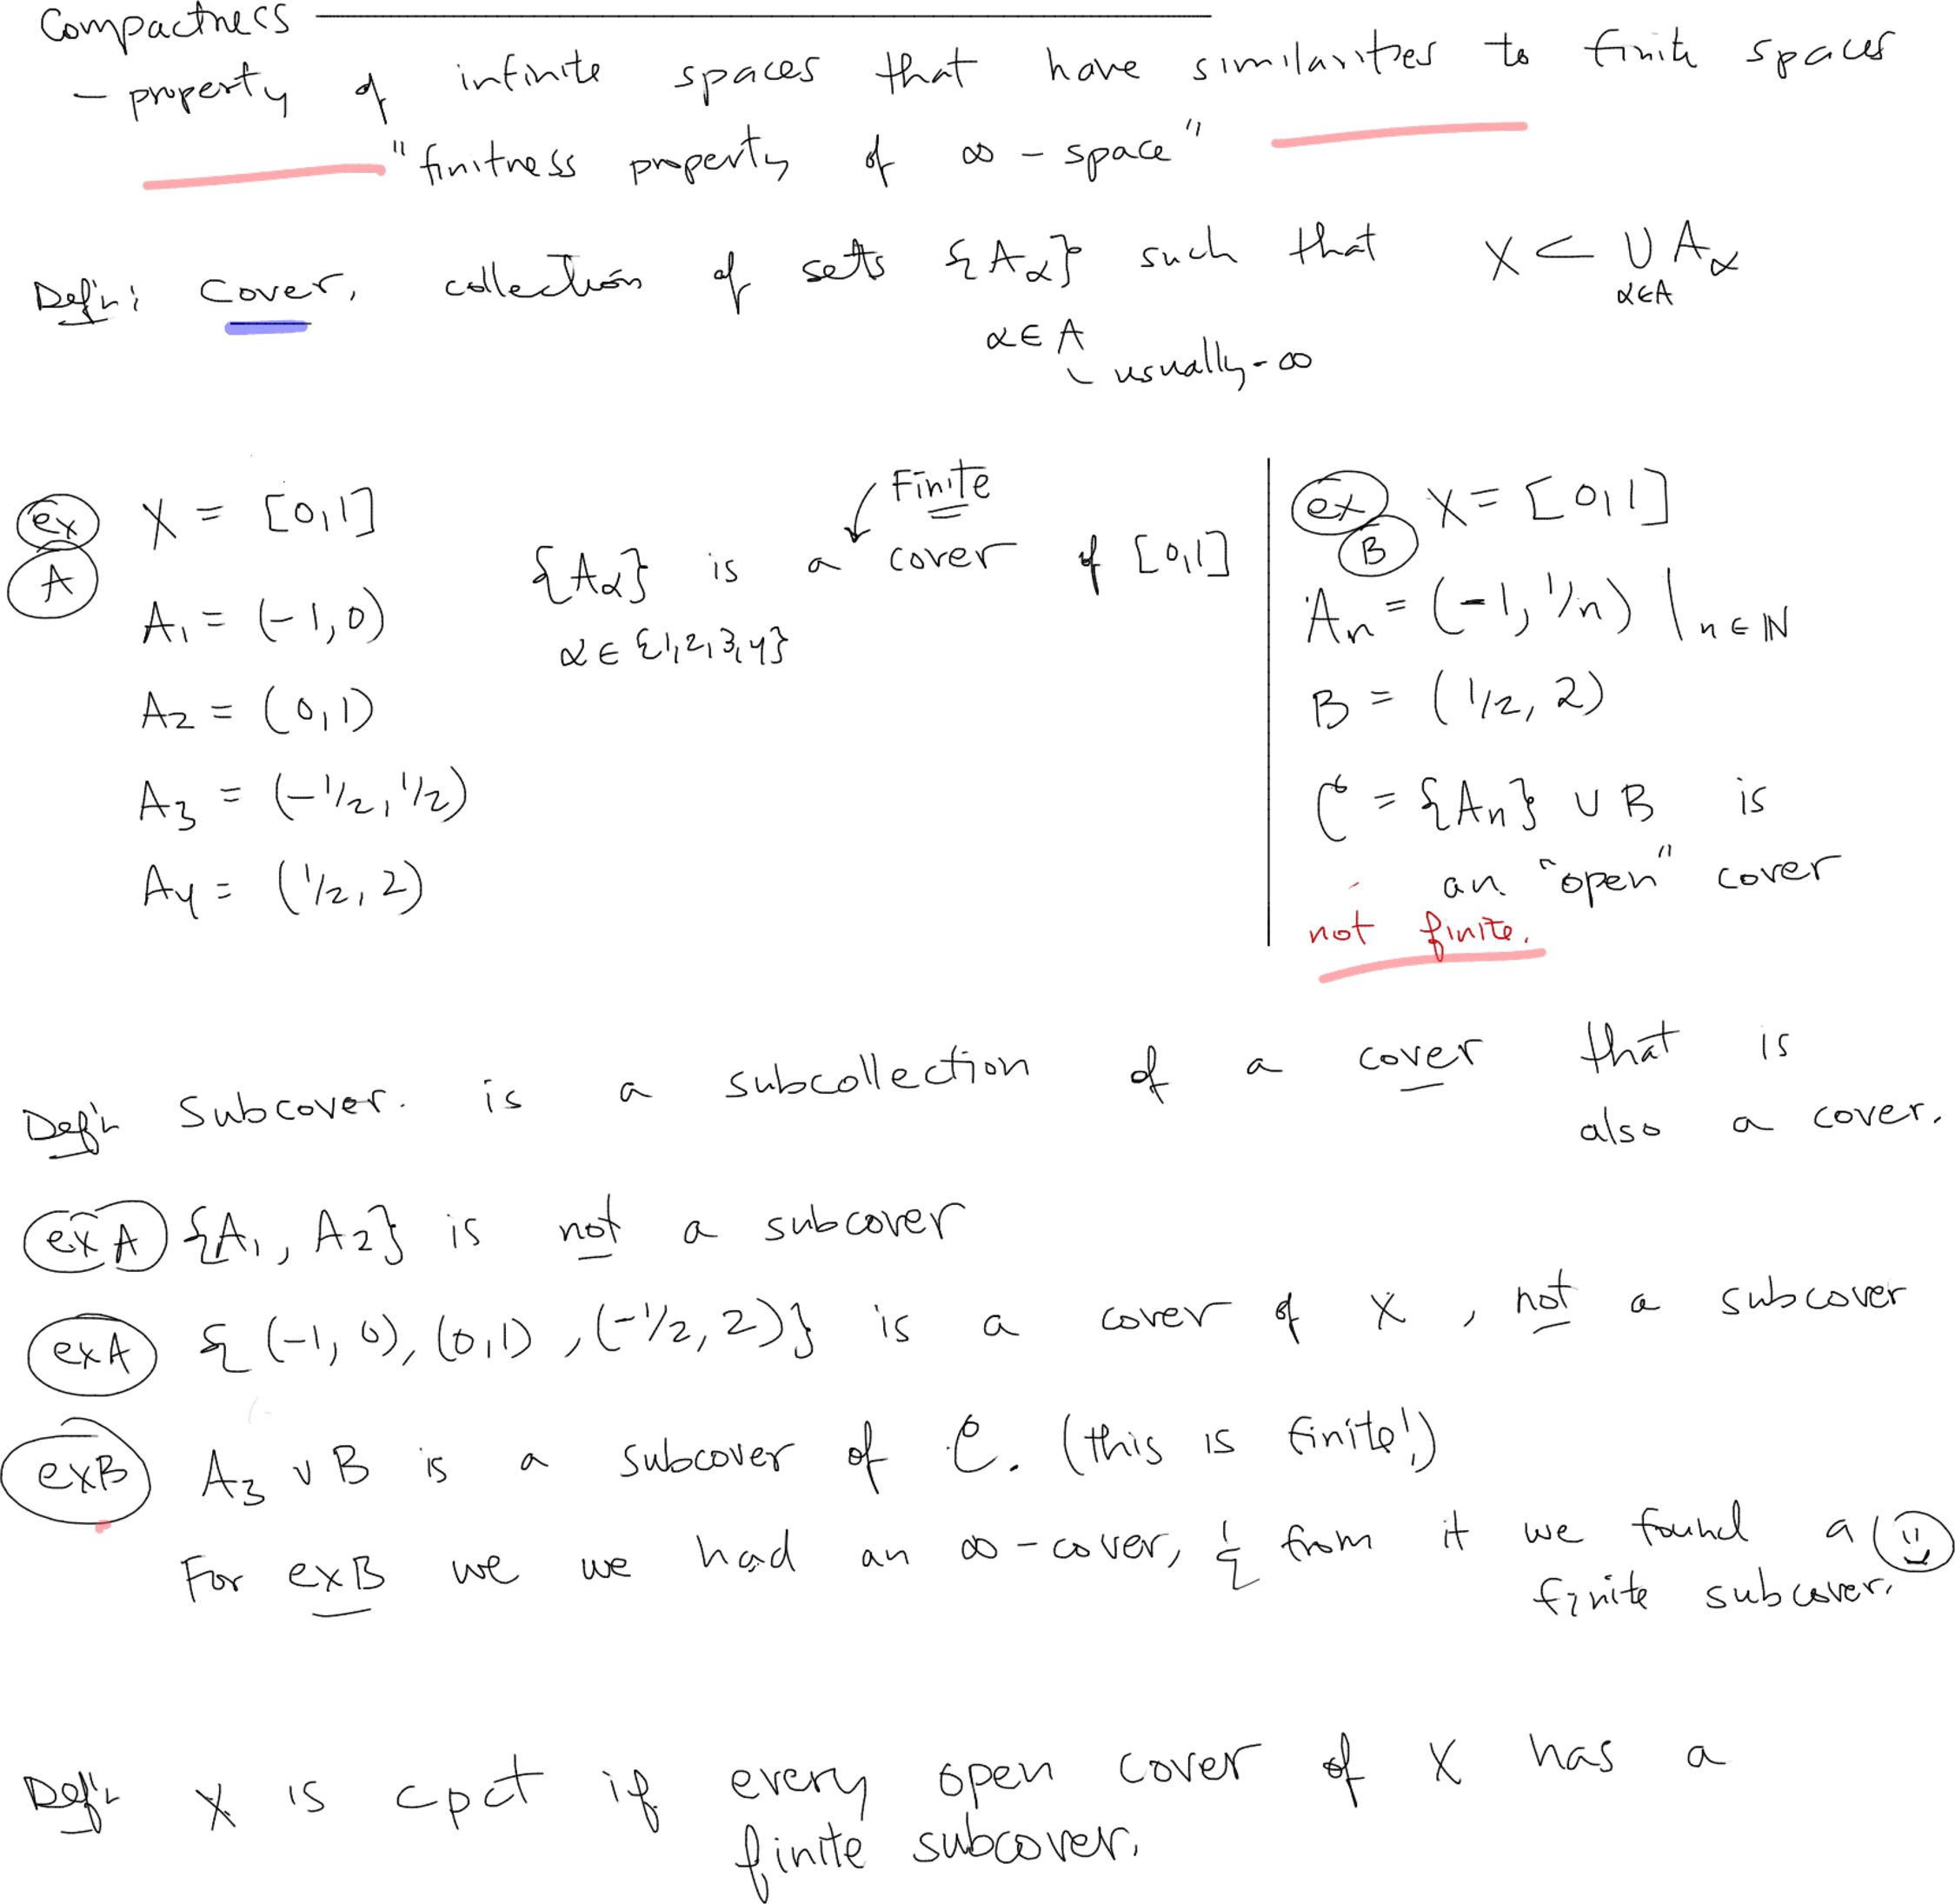 Compactness
- property of infinite spaces that have similarities to finite spaces
"finitness property of ∞ - space"
Def'n: cover, collection of sets {Aα} such that X ⊂ ∪ Aα
α∈A
α∈A
usually - ∞
ex A
X = [0,1]
Finite
{Aα} is a cover of [0,1]
α ∈ {1,2,3,4}
A₁ = (-1,0)
A₂ = (0,1)
A₃ = (-1/2, 1/2)
A₄ = (1/2, 2)
ex B
X = [0,1]
Aₙ = (-1, 1/n) |n∈ℕ
B = (1/2, 2)
C = {Aₙ} ∪ B is
an "open" cover
not finite.
Def'n subcover. is a subcollection of a cover that is
also a cover.
exA {A₁, A₂} is not a subcover
exA { (-1, 0), (0,1), (-1/2, 2)} is a cover of X, not a subcover
exB A₃ ∪ B is a subcover of C. (this is finite!)
For exB we we had an ∞ - cover, & from it we found a
finite subcover.
Def'n X is cpct if every open cover of X has a
finite subcover.